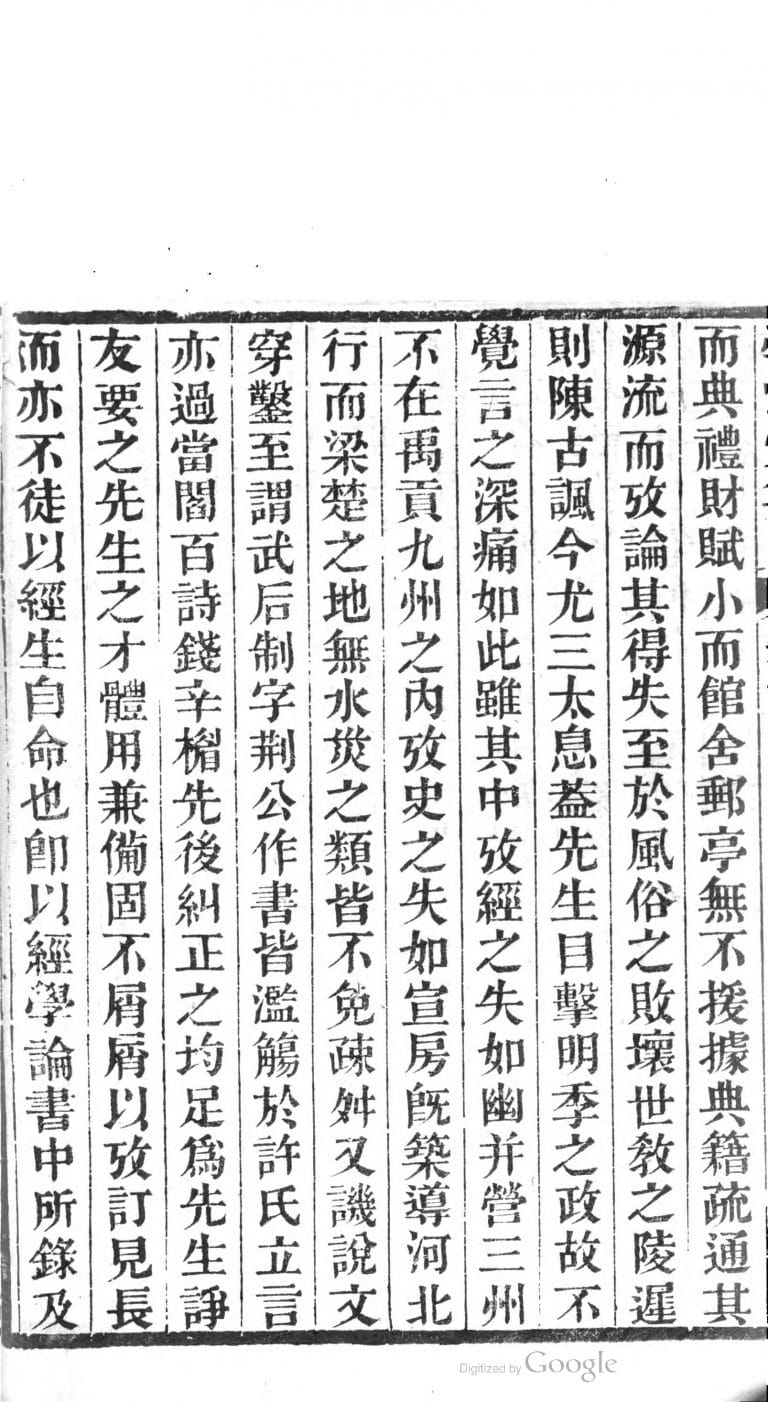 而典禮財賦小而館舍郵亭無不援據典籍疏通其
源流而攷論其得失至於風俗之敗壞世敎之陵遲
則陳古諷今尤三太息葢先生目擊明季之政故不
覺言之深痛如此雖其中攷經之失如幽并營三州
不在禹貢九州之內攷史之失如宣房旣築導河北
行而梁楚之地無水災之類皆不免疎舛又譏說文
穿鑿至謂武后制字荆公作書皆濫觴於許氏立言
亦過當閻百詩錢辛楣先後糾正之均足爲先生諍
友要之先生之才體用兼備固不屑屑以攷訂見長
而亦不徒以經生自命也卽以經學論書中所錄及
Digitized by Google